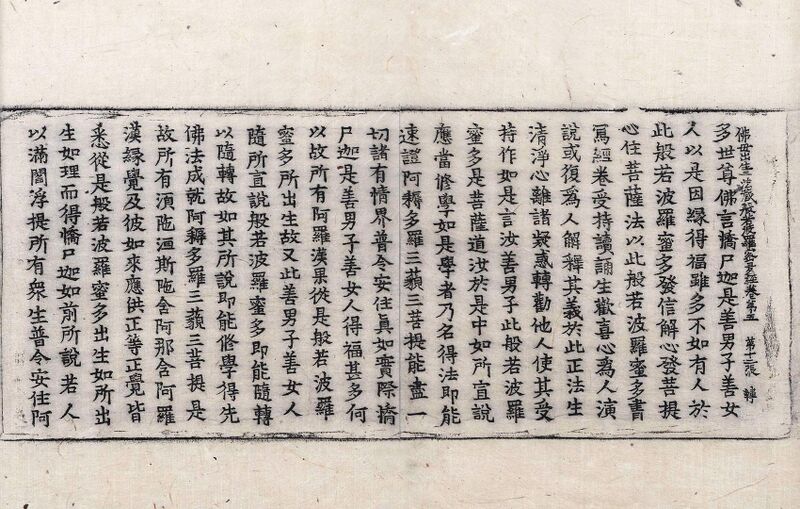 佛母出生三法藏般若波羅蜜多經卷第五 第十二張 轉
多世尊佛言憍尸迦是善男子善女
人以是因緣得福雖多不如有人於
此般若波羅蜜多發信解心發菩提
心住菩薩法以此般若波羅蜜多書
寫經卷受持讀誦生歡喜心為人演
說或復為人解釋其義於此正法生
清淨心離諸疑惑轉勸他人使其受
持作如是言汝善男子此般若波羅
蜜多是菩薩道汝於是中如所宣說
應當修學如是學者乃名得法即能
速證阿耨多羅三藐三菩提能盡一
切諸有情界普令安住真如實際憍
尸迦是善男子善女人得福甚多何
以故所有阿羅漢果從是般若波羅
蜜多所出生故又此善男子善女人
隨所宣說般若波羅蜜多即能隨轉
以隨轉故如其所說即能修學得先
佛法成就阿耨多羅三藐三菩提是
故所有須陁洹斯陁含阿那含阿羅
漢緣覺及彼如來應供正等正覺皆
悉從是般若波羅蜜多出生如所出
生如理而得憍尸迦如前所說若人
以滿閻浮提所有衆生普令安住阿